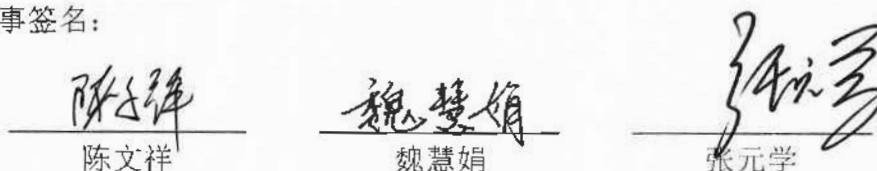 事签名：
陈文祥 魏慧娟 张元学
陈文祥 魏慧娟 张元学